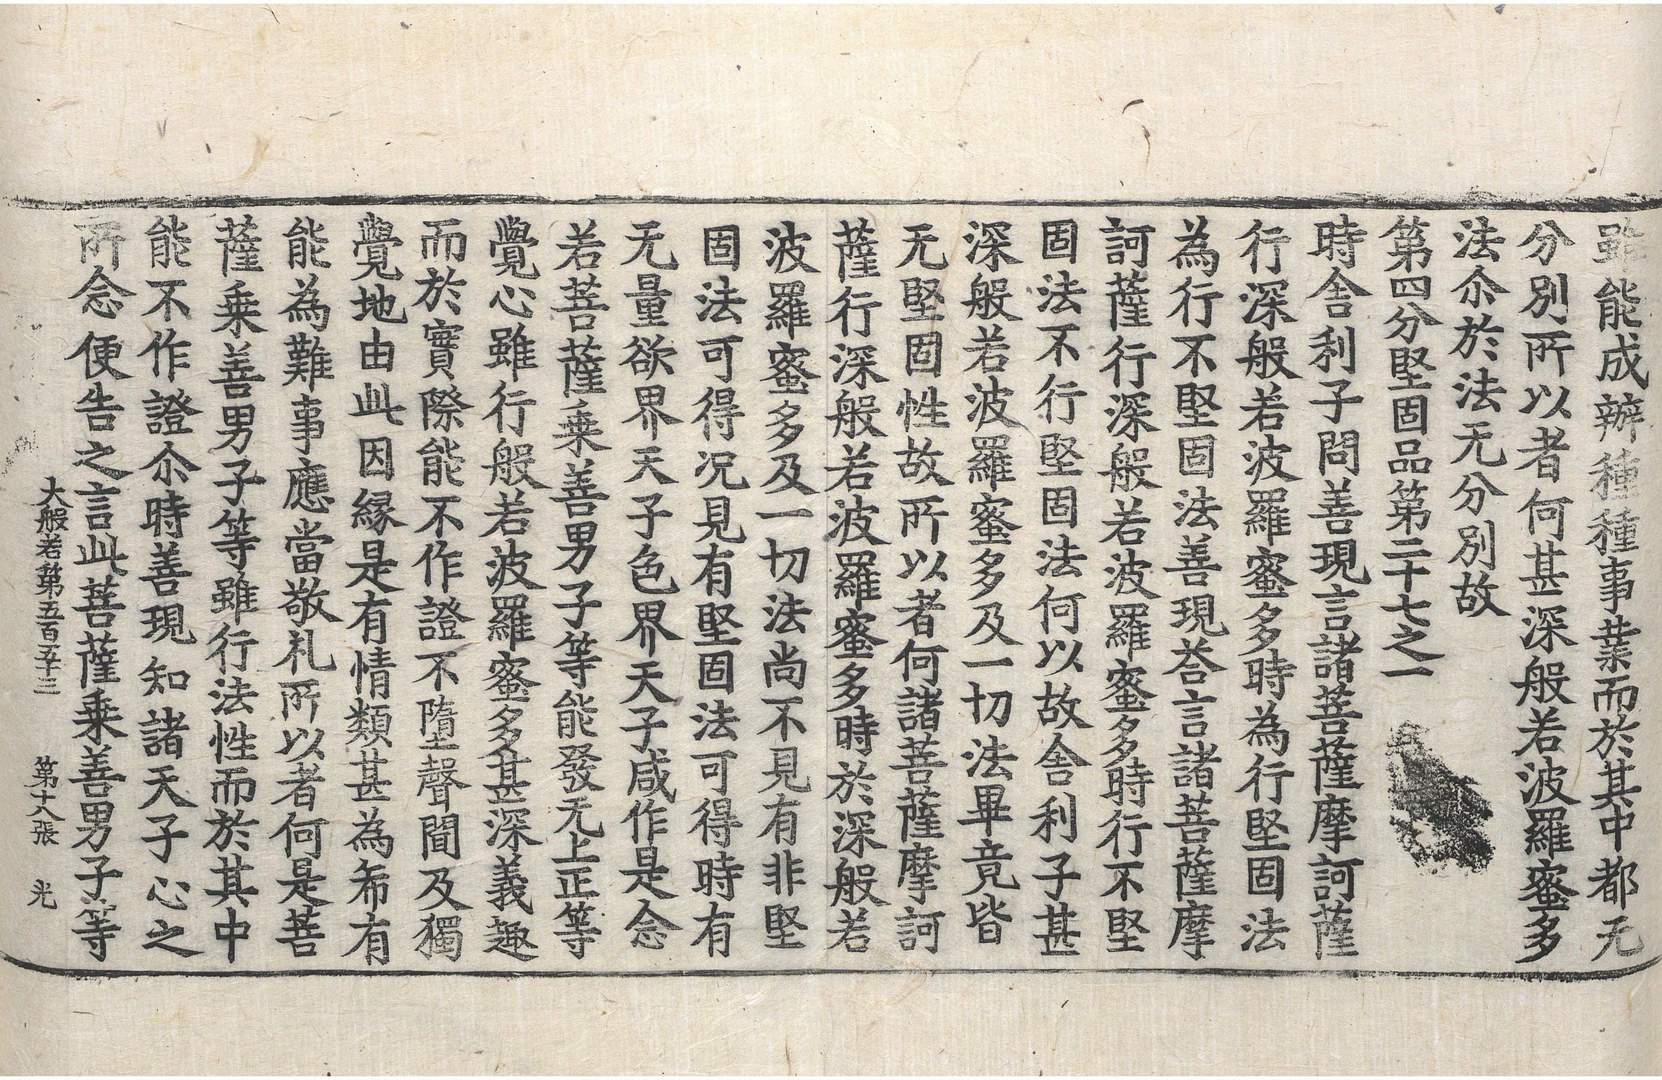 雖能成辦種種事業而於其中都无
分別所以者何甚深般若波羅蜜多
法尒於法无分別故
第四分堅固品第二十七之一
時舍利子問善現言諸菩薩摩訶薩
行深般若波羅蜜多時為行堅固法
為行不堅固法善現荅言諸菩薩摩
訶薩行深般若波羅蜜多時行不堅
固法不行堅固法何以故舍利子甚
深般若波羅蜜多及一切法畢竟皆
无堅固性故所以者何諸菩薩摩訶
薩行深般若波羅蜜多時於深般若
波羅蜜多及一切法尚不見有非堅
固法可得况見有堅固法可得時有
无量欲界天子色界天子咸作是念
若菩薩乗善男子等能發无上正等
覺心雖行般若波羅蜜多甚深義趣
而於實際能不作證不墮聲聞及獨
覺地由此因緣是有情類甚為希有
能為難事應當敬礼所以者何是菩
薩乗善男子等雖行法性而於其中
能不作證尒時善現知諸天子心之
所念便告之言此菩薩乗善男子等
大般若第五百五十三 第十八張 光